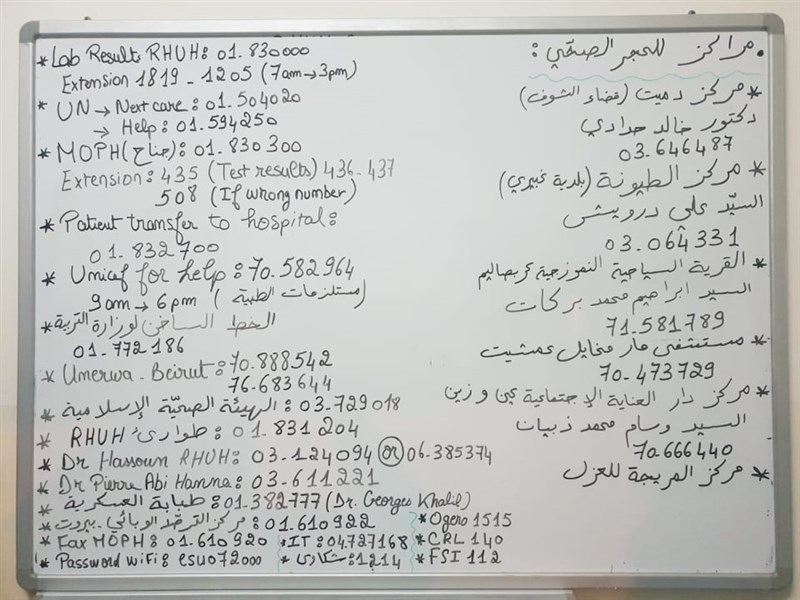 * Lab Results RHUH: 01.830000
Extension 1819 - 1205 (7am→3pm)
* UN → Next care: 01.504020
→ Help: 01.594250
* MOPH (جناح): 01.830300
Extension: 435 (Test results) 436-437
508 (If wrong number)
* Patient transfer to hospital:
01.832700
* Unicef for help: 70.582964
9am → 6pm (مستلزمات الطبية)
* الخط الساخن لوزارة التربية
01-772186
* Umerwa-Beirut: 70.888542
76.683644
* الهيئة الصحيّة الإسلامية: 03-729018
* RHUH طوارئ: 01.831204
* Dr Hassoun RHUH: 03-124094 or 06-385374
* Dr Pierre Abi Hanna: 03-611221
* طبابة العسكرية: 01-382777 (Dr. Georges Khalil)
* مركز الترصّد الوبائي - بيروت: 01.610922
* Fax MOPH: 01.610920
* Password wifi: esu072000
* IT: 04.727168
* شكاوى: 1214
* Ogero 1515
* CRL 140
* FSI 112
. مراكز للحجر الصحّي:
* مركز دميت (قضاء الشوف)
دكتور خالد حدادي
03-646487
* مركز الطيونة (بلدية غبيري)
السيّد علي درويش
03.064331
* القرية السياحية النموزجية عربصاليم
السيد ابراهيم محمد بركات
71.581789
* مستشفى مار مخايل عمشيت
70-473729
* مركز دار العناية الإجتماعية عين و زين
السيد وسام محمد ذبيان
70.666440
* مركز المريجة للعزل